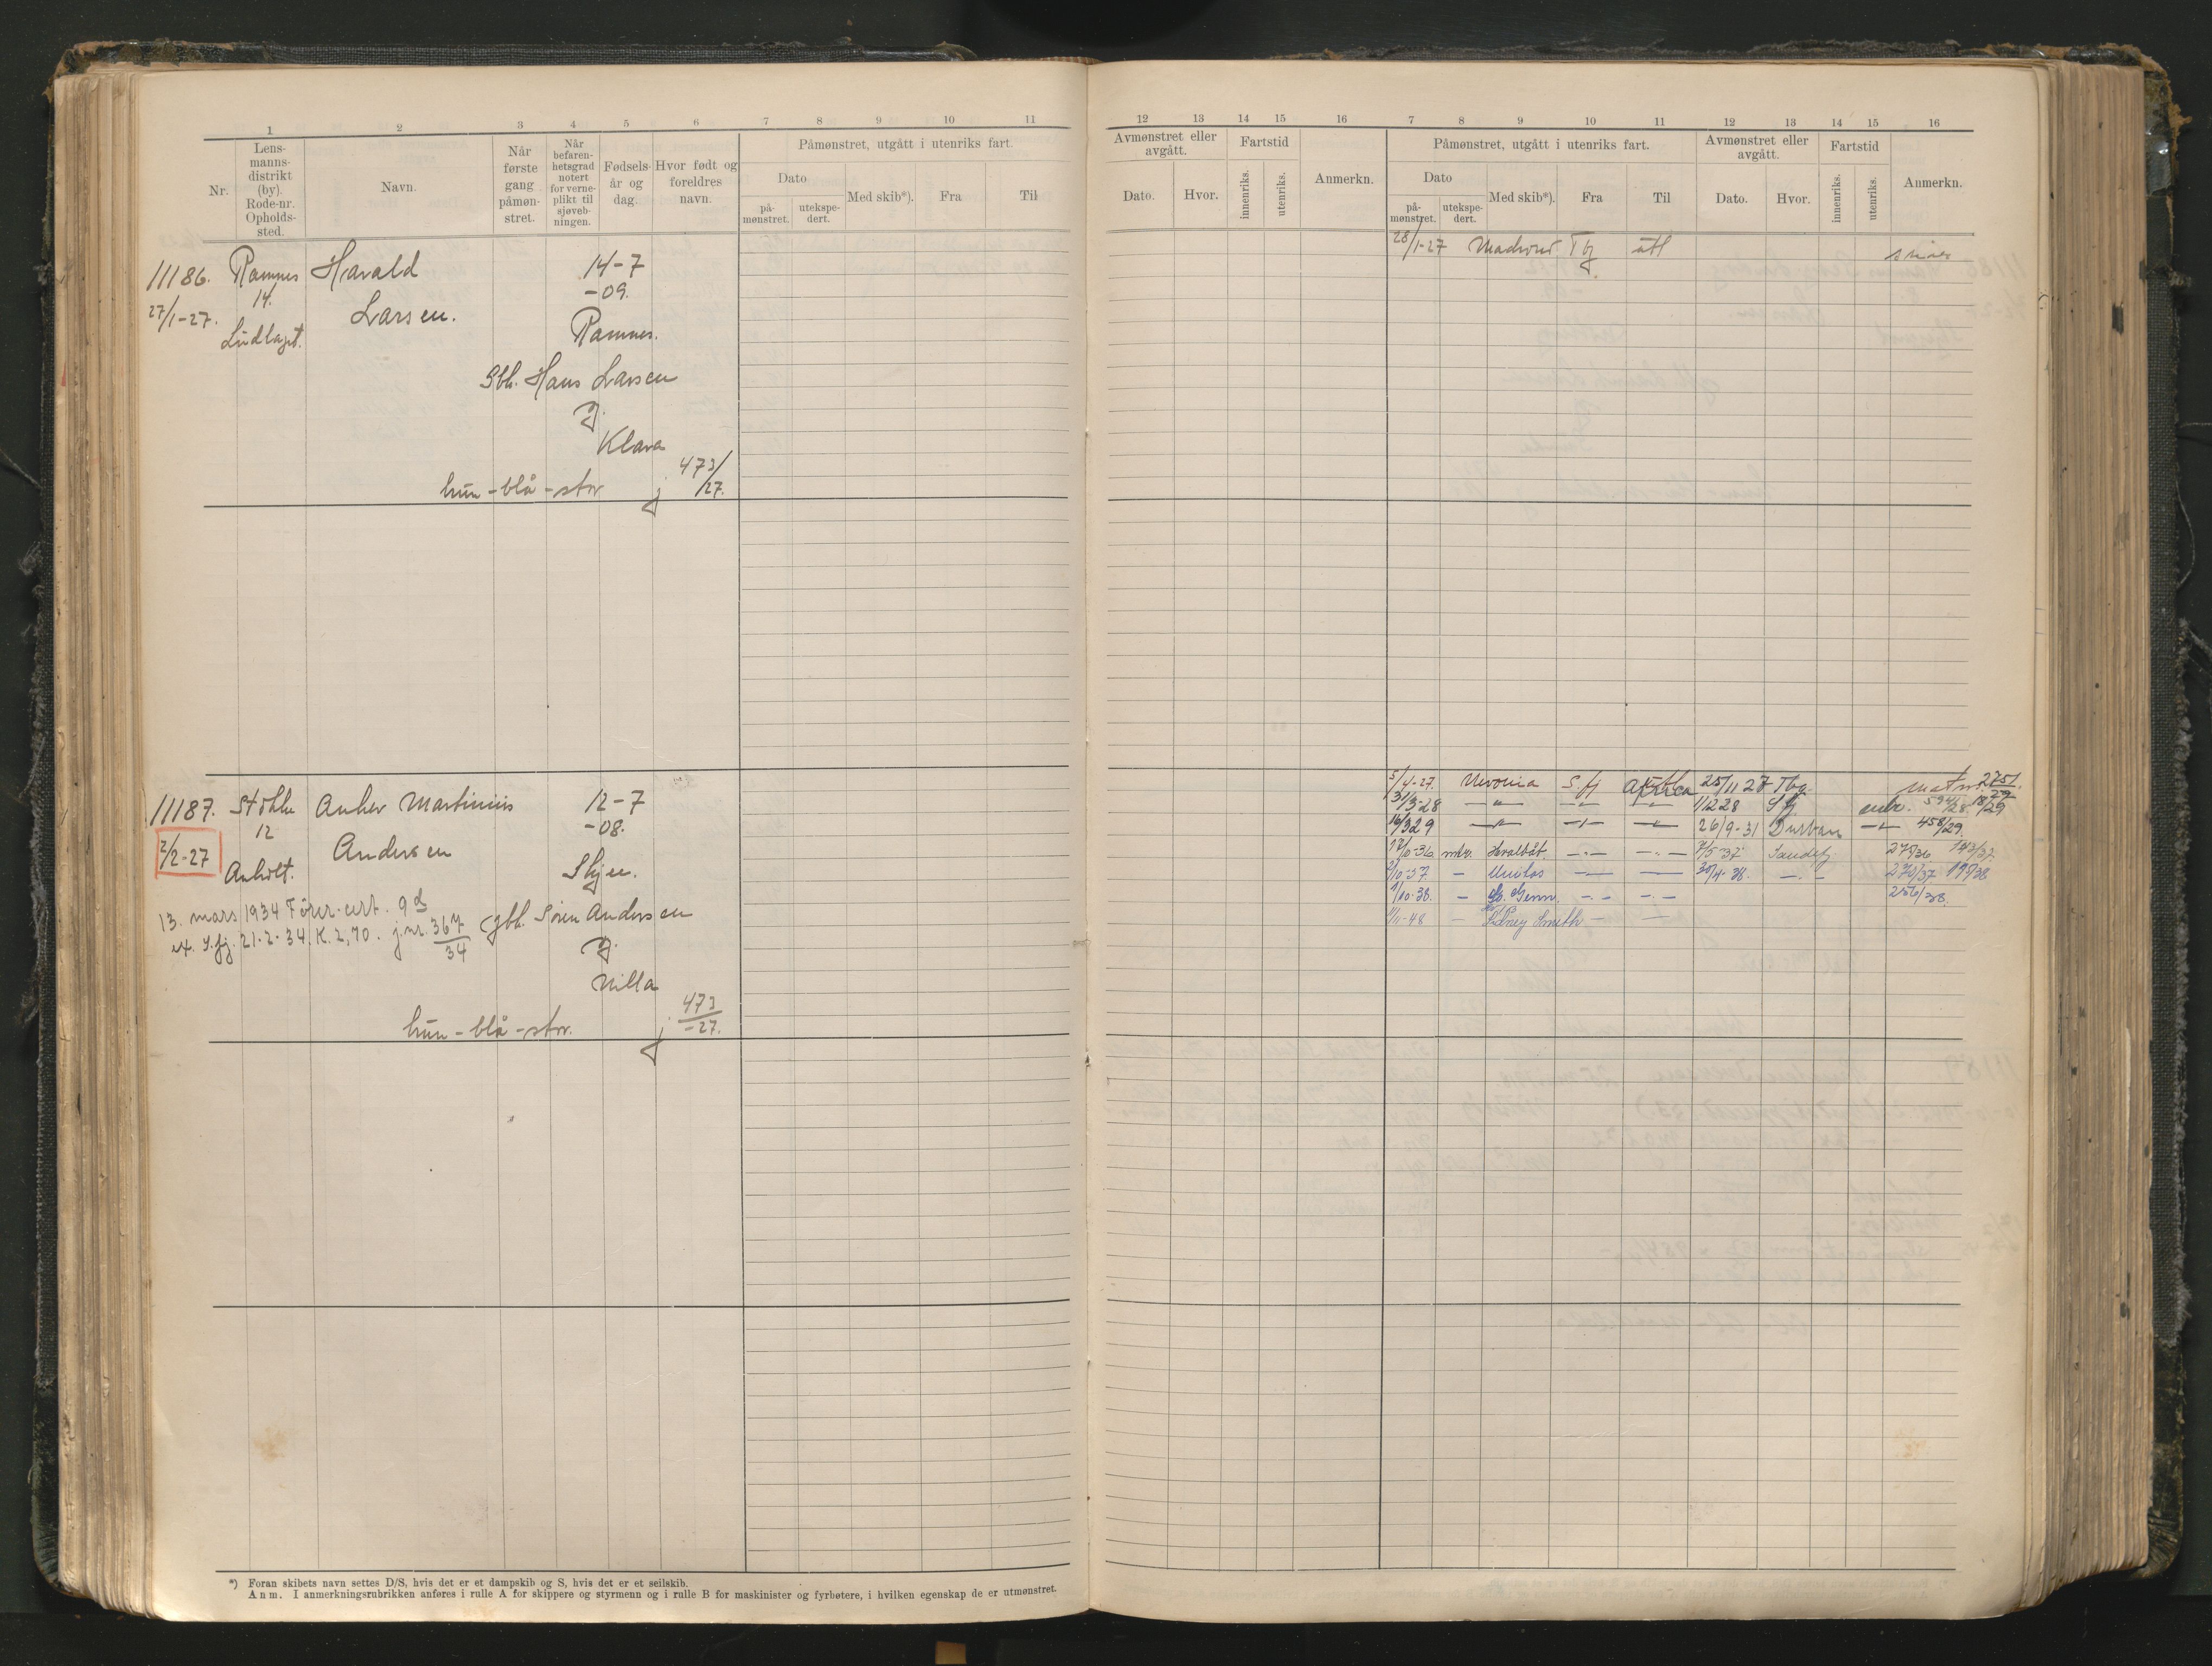 1 2 3 4 5 6 7 8 9 10 11
Nr.
Lens-
manns-
distrikt
(by).
Rode-nr.
Opholds-
sted.
Navn.
Når
første
gang
påmøn-
stret.
Når
befaren-
hetsgrad
notert
for verne-
plikt til
sjøveb-
ningen.
Fødsels-
år og
dag.
Hvor født og
foreldres
navn.
Påmønstret, utgått i utenriks fart.
Dato
på-
mønstret.
utekspe-
dert.
Med skib*).
Fra
Til
11186. Ramnes Harald 14-7
14. -09.
27/1-27. Larsen.
Ramnes.
Gbh. Hans Larsen
Klara
hun - blå - stor. j 473/27.
11187. Stokke Anker Martinius 12-7
12 -08.
2/2-27 Andersen
Anholt. Skjee.
13. mars 1934 Fører-cert.
ex. S.fj. 21-2-34. K. 2,70. j.nr. 367/34
gbh. Sören Andersen
Milla
hun - blå - stor. j 473/-27.
*) Foran skibets navn settes D/S, hvis det er et dampskib og S, hvis det er et seilskib.
Anm. I anmerkningsrubrikken anføres i rulle A for skippere og styrmenn og i rulle B for maskinister og fyrbøtere, i hvilken egenskap de er utmønstret.
12 13 14 15 16 7 8 9 10 11 12 13 14 15 16
Avmønstret eller
avgått.
Dato.
Hvor.
Fartstid
innenriks.
utenriks.
Anmerkn.
Påmønstret, utgått i utenriks fart.
Dato
på-
mønstret.
utekspe-
dert.
Med skib*).
Fra
Til
Avmønstret eller
avgått.
Dato.
Hvor.
Fartstid
innenriks.
utenriks.
Anmerkn.
28/1-27 Tbg utl
5/4-27. Mevonia S.fj Africa 25/11 27 Tbg. 2751/27
31/3-28 — " — — " — — " — 1/12 28 S fj 594/28 18/29
16/3 29 — " — — " — — " — 26/9-31 Durban — " — 458/29.
17/10-36 mkr. Hvalbåt. — " — — " — 7/5-37 Sandefj. 275/36 143/37.
2/10-37. — Unitas — " — — " — 30/4-38. — " — 273/37 195/38
1/10-38. — — " — — " — 256/38.
1/11-48 — Sidney Smith — —